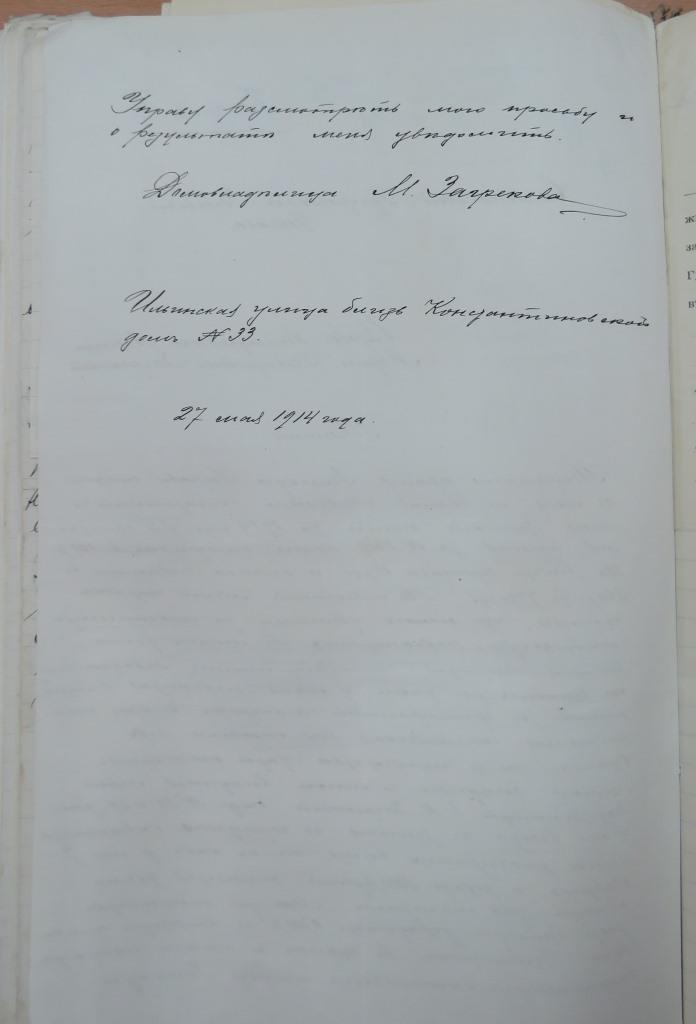 Управу разсмотрѣть мою просьбу и
о результатѣ меня увѣдомить.
Домовладѣлица М. Загрекова
Ильинская улица близь Константиновской
домъ № 33.
27 мая 1914 года.